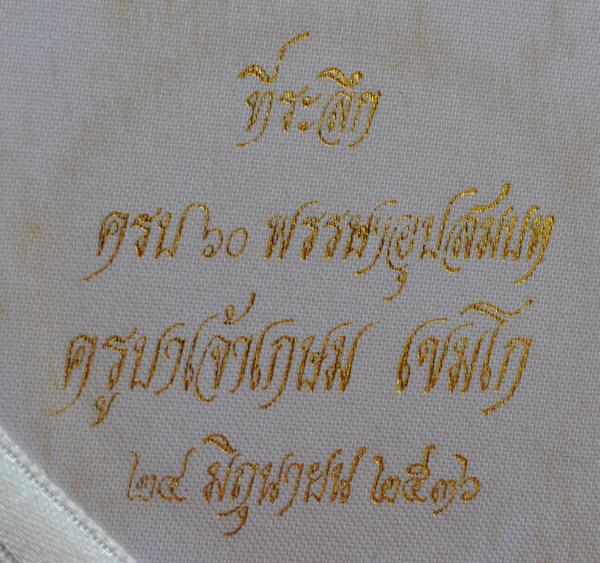 ที่ระลึก
ครบ ๖๐ พรรษาอุปสมบท
ครูบาเจ้าเกษม เขมโก
๒๔ มิถุนายน ๒๕๓๖